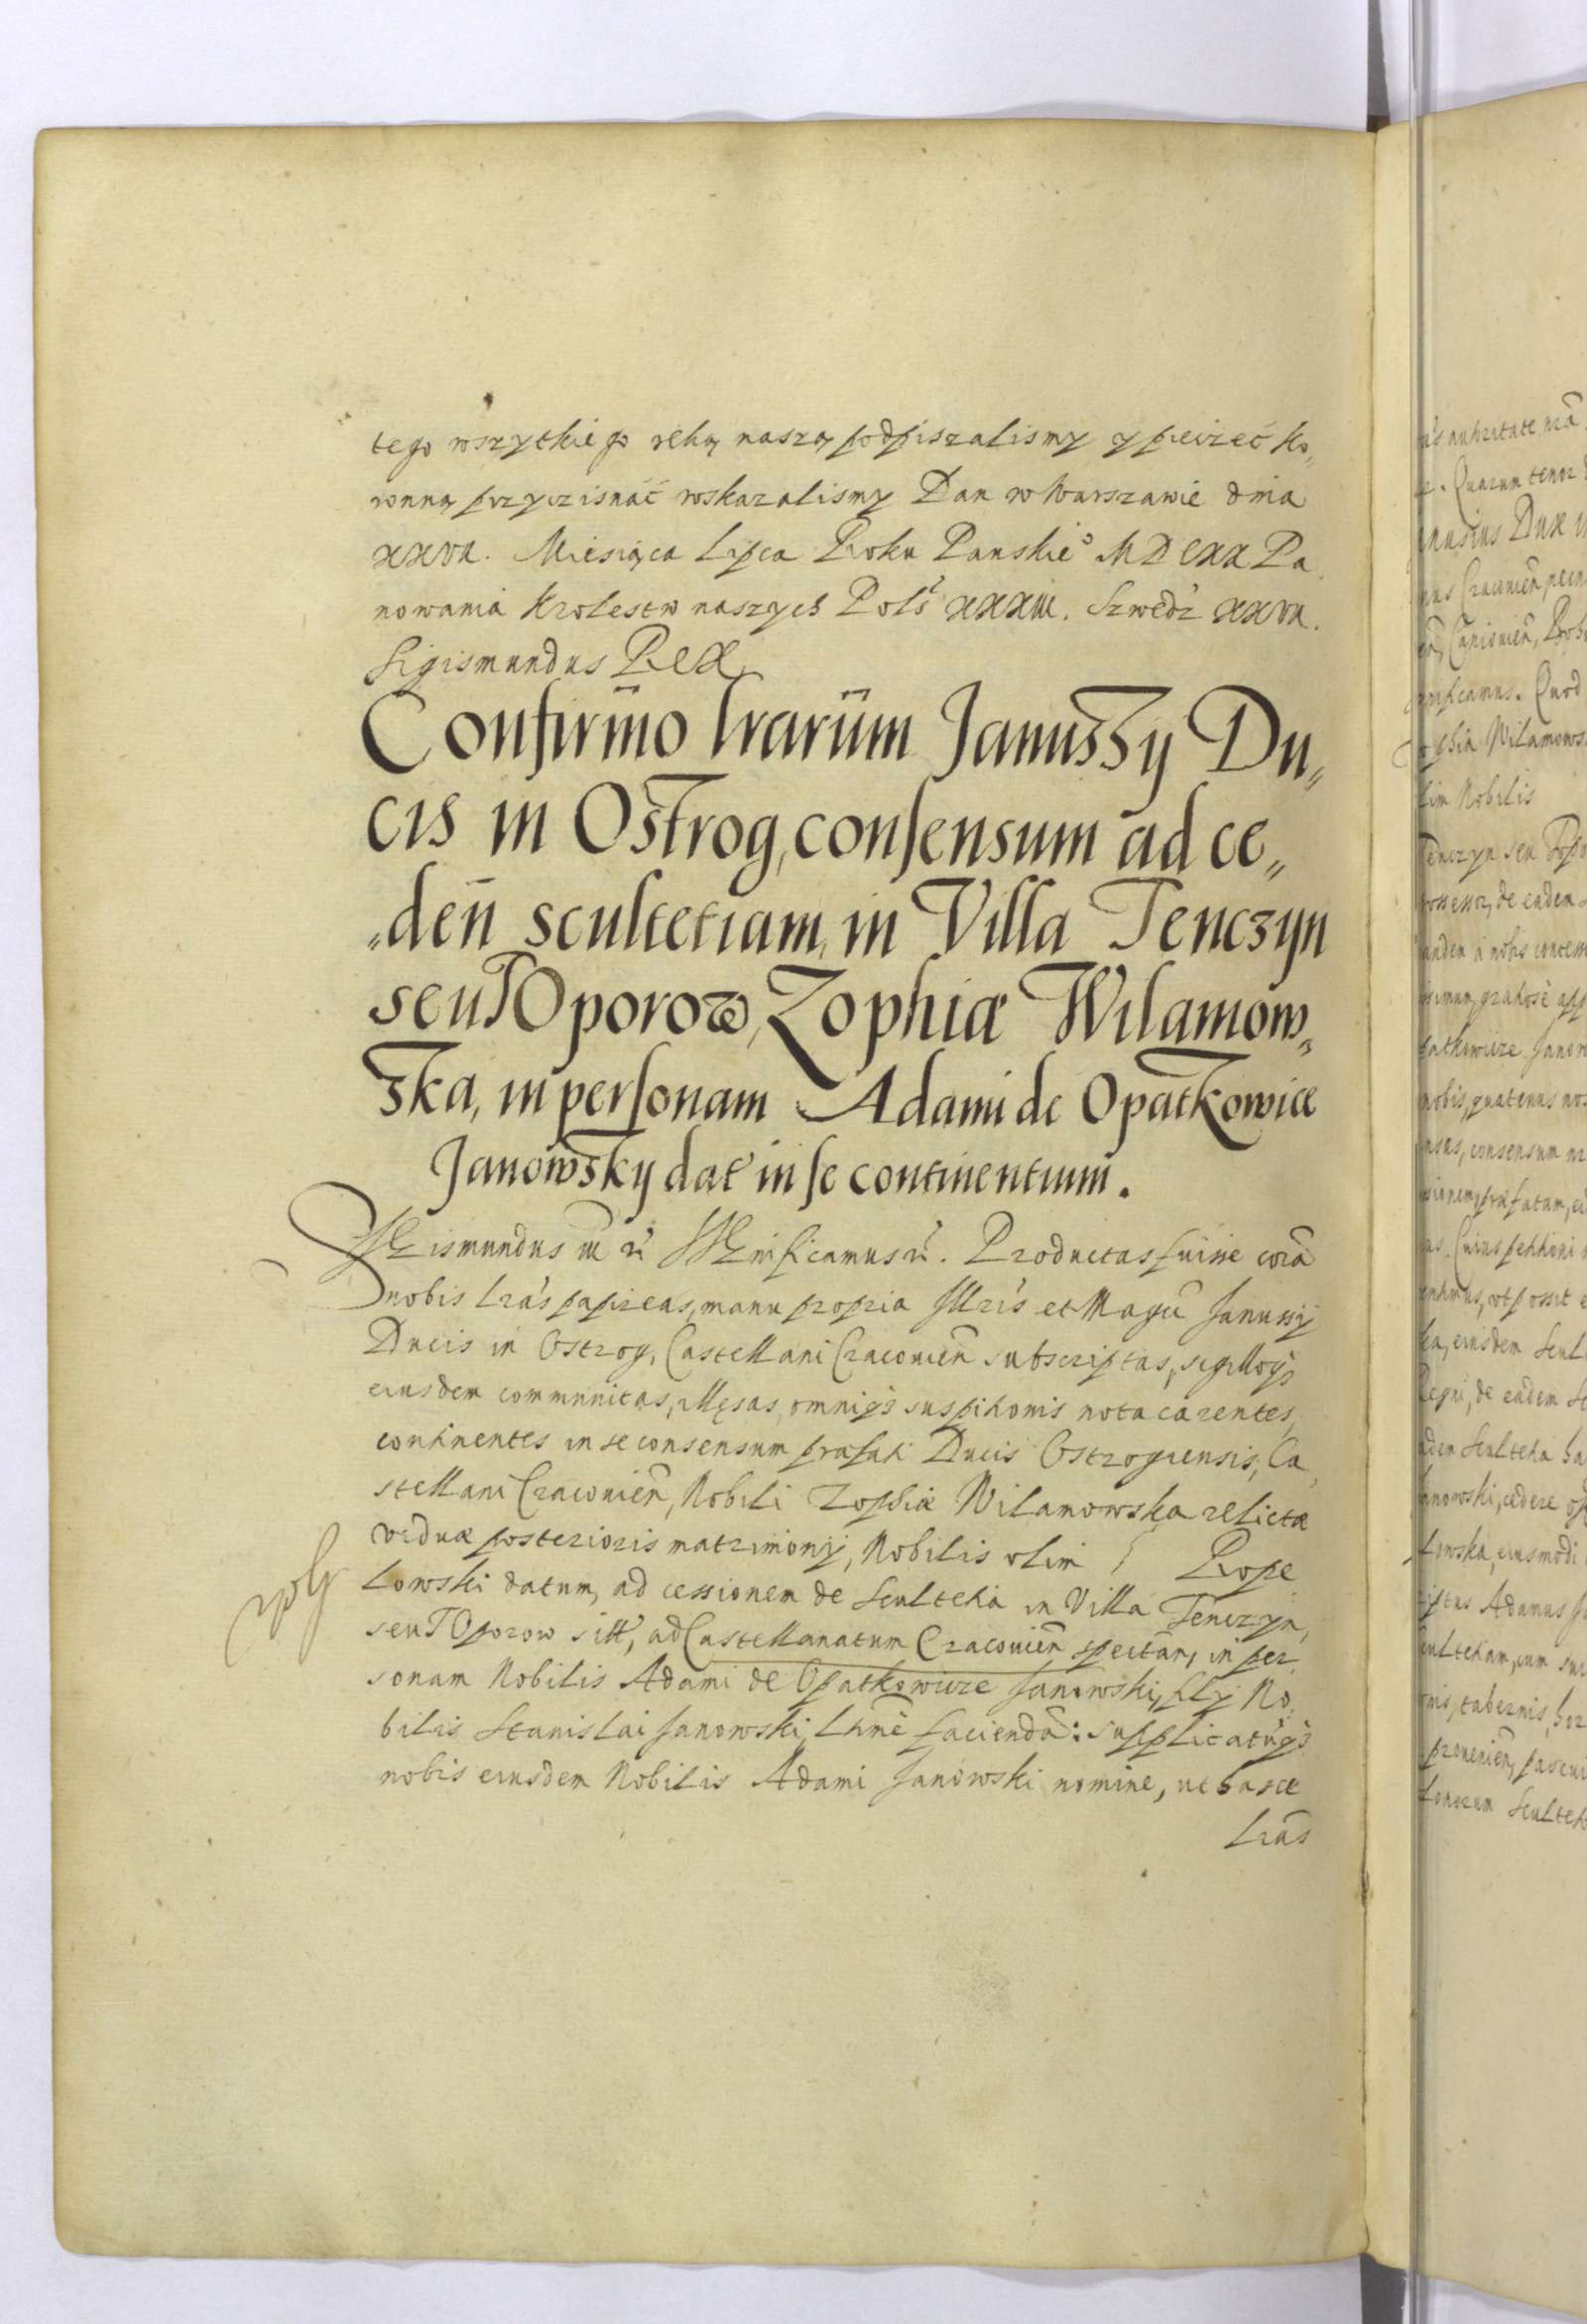 tego wszytkiego ręką naszą podpiszalismy y pieizęć ko„
ronną przycisnać wskazalismy Dan w Warszawie dnia
xxvii. Miesiąca Lipca Roku Panskie° MDCXX Pa
nowania Krolestw naszych Pols xxxiii. Szwedz xxvii.
Sigismundus Rex
Confirmo lrarum Janusszy Du„
cis in Ostrog, consensum ad ce„
„den scultetiam, in Villa Tenczyn
seu TOporow, Zophiæ Wilamow„
ska, in personam Adami de Opatkowice
Janowsky dat in se continentium.
Sigismundus iii rc Significamus rc. Productas fuisse corā
nobis lrās papireas, manu propria Illris et Magci Janussij
Ducis in Ostrog, Castellani Cracovien̄ subscriptas, sigilloqз
eiusdem communitas, illęsas, omniqз suspitionis nota carentes,
continentes in se consensum præfati Ducis Ostrogiensis, Ca„
stellani Cracovien̄, Nobili Zophiæ Wilamowska relictæ
viduæ posterioris matrimonij, Nobilis olim Prope
Lowski datum, ad cessionem de Scultetia in Villa Tenczyn,
seu TOporow sitt, ad Castellanatum Cracovien̄ spectan, in per„
sonam Nobilis Adami de Opatkowice Janowski, filij No„
bilis Stanislai Janowski, ltimē faciendā: supplicatūqз
nobis eiusdem Nobilis Adami Janowski nomine, ut hasce
lrās
us authoritate nrā
Quarum tenor
anusius Dux
Cracovien̄
ificamus. Quod
ophia Wilamows
lim Nobilis
Tenczyn seu
ossessor, de eadem
andem a nobis
patkowicze Janow
nobis, quatenus nos
nsus, consensum
præfatam,
Cuius petitioni
ut possit
ka, eiusdem Scul
Regni, de eadem
adem Scultetia
anowski, cedere
Lowska, eiusmodi
Adamus
cultetiam, cum
tabernis,
provenien̄,
Scultet